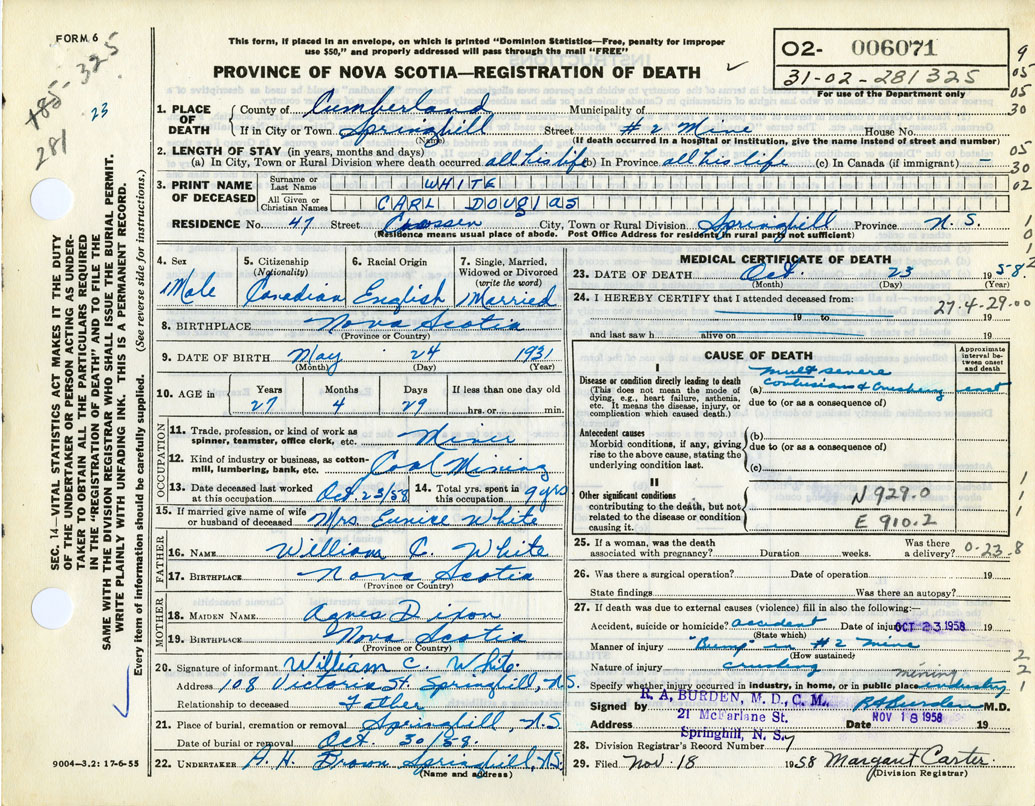 FORM 6
This form, if placed in an envelope, on which is printed "Dominion Statistics—Free, penalty for improper
use $50," and properly addressed will pass through the mail "FREE"
PROVINCE OF NOVA SCOTIA—REGISTRATION OF DEATH
02- 006071
31-02-281325
For use of the Department only
185-325
281
23
9
05
05
30
05
30
02
SEC. 14—VITAL STATISTICS ACT MAKES IT THE DUTY
OF THE UNDERTAKER OR PERSON ACTING AS UNDER-
TAKER TO OBTAIN ALL THE PARTICULARS REQUIRED
IN THE "REGISTRATION OF DEATH" AND TO FILE THE
SAME WITH THE DIVISION REGISTRAR WHO SHALL ISSUE THE BURIAL PERMIT.
WRITE PLAINLY WITH UNFADING INK. THIS IS A PERMANENT RECORD.
Every item of information should be carefully supplied. (See reverse side for instructions.)
1. PLACE OF DEATH County of Cumberland Municipality of
If in City or Town Springhill Street #2 Mine House No.
(Name) (If death occurred in a hospital or institution, give the name instead of street and number)
2. LENGTH OF STAY (in years, months and days)
(a) In City, Town or Rural Division where death occurred all his life (b) In Province all his life (c) In Canada (if immigrant) —
3. PRINT NAME OF DECEASED Surname or Last Name WHITE
All Given or Christian Names CARL DOUGlAS
RESIDENCE No. 47 Street City, Town or Rural Division Springhill Province N.S.
(Residence means usual place of abode. Post Office Address for residents in rural party not sufficient)
4. Sex 5. Citizenship (Nationality) 6. Racial Origin 7. Single, Married, Widowed or Divorced (write the word)
Male Canadian English Married
8. BIRTHPLACE Nova Scotia
(Province or Country)
9. DATE OF BIRTH May 24 1931
(Month) (Day) (Year)
10. AGE in Years Months Days If less than one day old
27 4 29 hrs. or min.
OCCUPATION
11. Trade, profession, or kind of work as
spinner, teamster, office clerk, etc. Miner
12. Kind of industry or business, as cotton-
mill, lumbering, bank, etc. Coal Mining
13. Date deceased last worked at this occupation Oct 23/58 14. Total yrs. spent in this occupation 9 yrs
15. If married give name of wife
or husband of deceased Mrs. Eunice White
FATHER
16. NAME William C. White
17. BIRTHPLACE Nova Scotia
(Province or Country)
MOTHER
18. MAIDEN NAME Agnes Dixon
19. BIRTHPLACE Nova Scotia
(Province or Country)
20. Signature of informant William C. White
Address 108 Victoria St. Springhill, N.S.
Relationship to deceased Father
21. Place of burial, cremation or removal Springhill, N.S.
Date of burial or removal Oct. 30/58
22. UNDERTAKER A. H. Brown Springhill, N.S.
(Name and address)
9004—3.2: 17-6-55
MEDICAL CERTIFICATE OF DEATH
23. DATE OF DEATH Oct. 23 1958
(Month) (Day) (Year)
24. I HEREBY CERTIFY that I attended deceased from: 27.4.29.00
19 to 19
and last saw h alive on 19
CAUSE OF DEATH
Approximate interval between onset and death
I
Disease or condition directly leading to death
(This does not mean the mode of
dying, e.g., heart failure, asthenia,
etc. It means the disease, injury, or
complication which caused death.)
mult severe
(a) contusions & crushing
due to (or as a consequence of)
Antecedent causes
Morbid conditions, if any, giving
rise to the above cause, stating the
underlying condition last.
(b)
due to (or as a consequence of)
(c)
II
Other significant conditions
contributing to the death, but not
related to the disease or condition
causing it.
N 929.0
E 910.2
25. If a woman, was the death
associated with pregnancy? Duration weeks. Was there a delivery? 0-23-8
26. Was there a surgical operation? Date of operation 19
State findings Was there an autopsy?
27. If death was due to external causes (violence) fill in also the following:—
Accident, suicide or homicide? accident Date of injury OCT 23 1958 19
(State which)
Manner of injury "Bump" in #2 mine
(How sustained)
Nature of injury crushing
mining
Specify whether injury occurred in industry, in home, or in public place industry
Signed by R. A. BURDEN, M. D., C. M. RABurden M.D.
Address 21 McFarlane St. Date NOV 18 1958 19
Springhill, N. S.
28. Division Registrar's Record Number
29. Filed Nov. 18 1958 Margaret Carter
(Division Registrar)